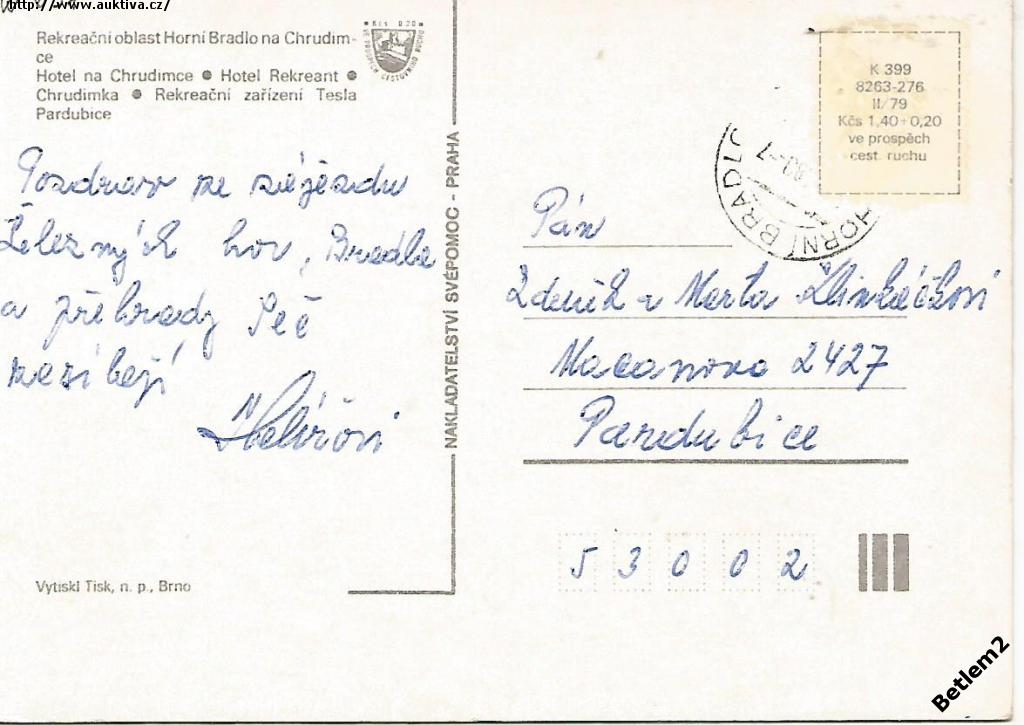 http://www.auktiva.cz/
Rekreační oblast Horní Bradlo na Chrudim-
ce
Hotel na Chrudimce ● Hotel Rekreant ●
Chrudimka ● Rekreační zařízení Tesla
Pardubice
Kčs 0,20
VE PROSPĚCH CESTOVNÍHO RUCHU
Pozdrav ze zájezdu
Železných hor, Bradla
a přehrady Seč
mezi
NAKLADATELSTVÍ SVÉPOMOC - PRAHA
K 399
8263-276
II/79
Kčs 1,40+0,20
ve prospěch
cest. ruchu
HORNÍ BRADLO
Pán
Zdeněk a Marta
Macanova 2427
Pardubice
53002
Vytiskl Tisk, n. p., Brno
Betlem2